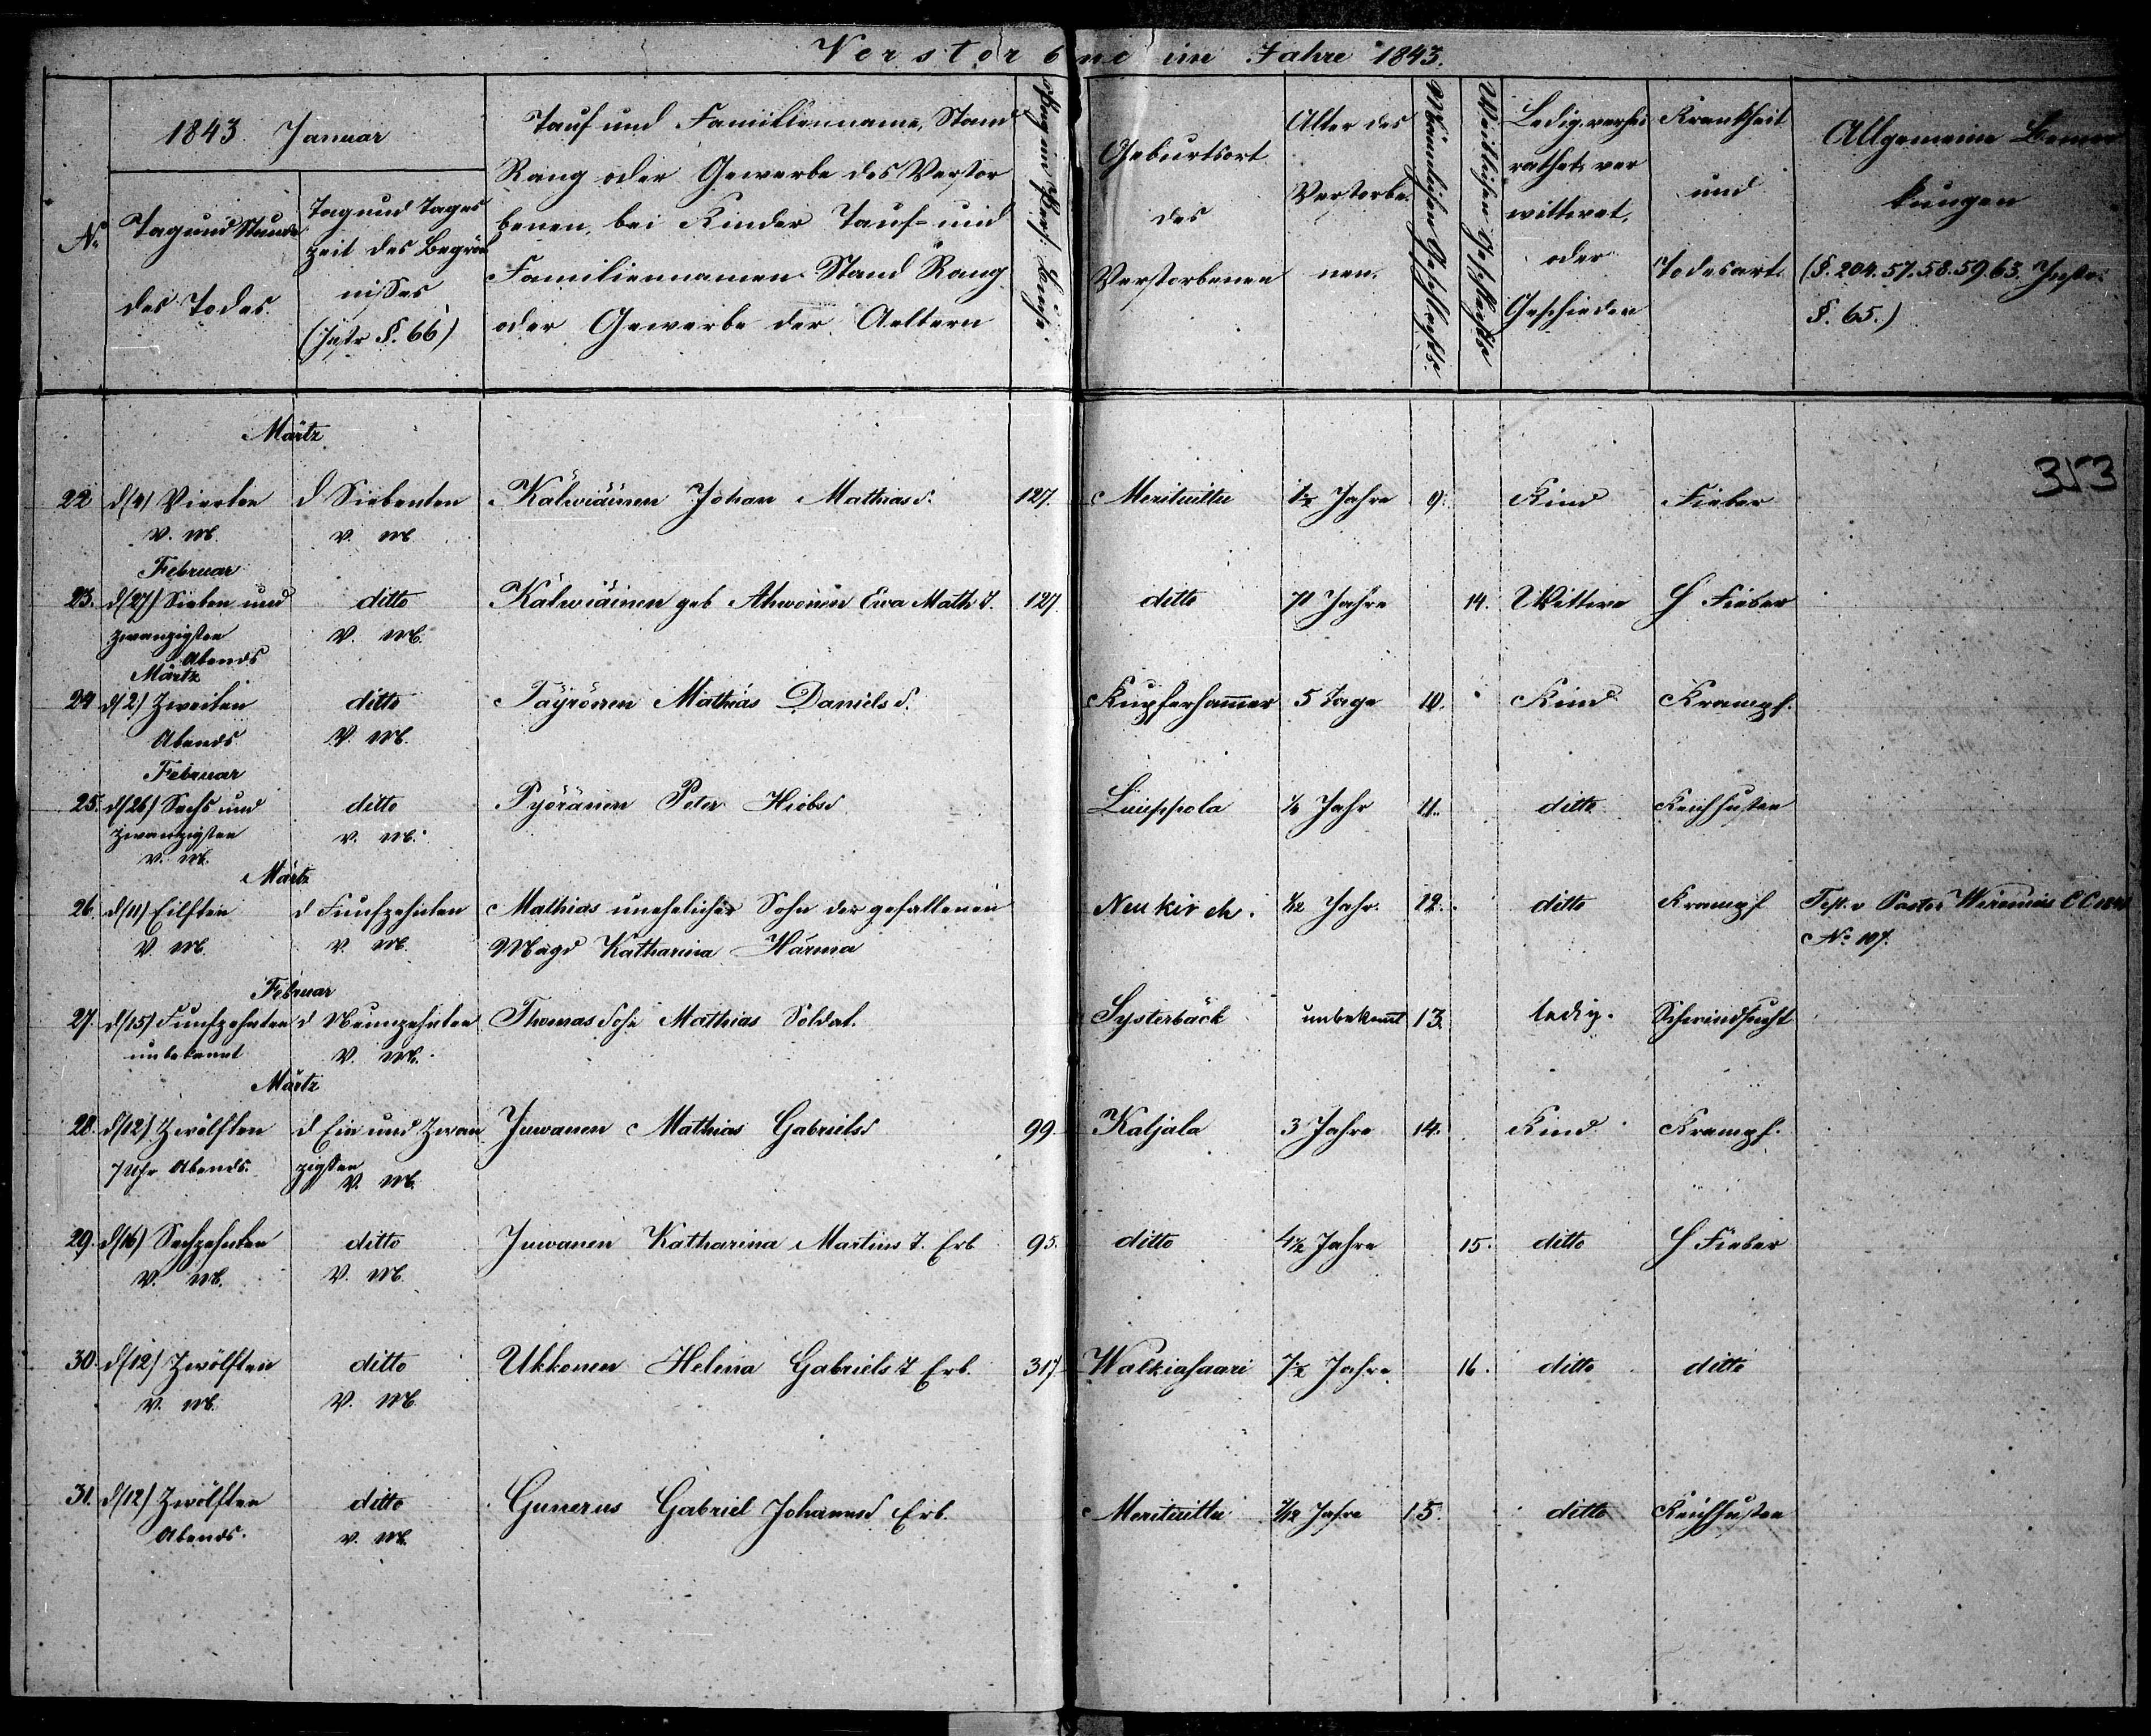 Verstorbene im Jahre 1843.
№
1843 Januar
Tag und Stunde
des Todes.
Tag und Tages
zeit des Begräb
nisses
(Instr §. 66)
Tauf und Familienname, Stand
Rang oder Gewerbe des Verstor
benen, bei Kinder Tauf- und
Familiennamen Stand Rang
oder Gewerbe der Aeltern
Geburtsort
des
Verstorbenen
Alter des
Verstorbe
nen.
Männlichen Geschlechts.
Weiblichen Geschlechts
Ledig, verhei
rathet, ver
wittwet,
oder
Geschieden
Krankheit
und
Todesart.
Allgemeine Bemer
kungen
(§. 204. 57. 58. 59. 63. Instr.
§. 65.)
353
Märtz
22 d/4/ Vierten d Siebenten Kälwiäinen Johan Mathias d. 127. Merituittu 1½ Jahre 9. Kind Fieber
V. M. V. M.
Februar
23. d/27/ Sieben und ditto Kälwiäinen geb Ahwonen Ewa Math T. 127 ditto 70 Jahre 14. Wittwe H Fieber
zwanzigsten V. M.
Abends
Märtz
24 d/2/ Zweiten ditto Päyrönen Mathias Daniels d. Kupferhammer 5 Tage 10. Kind Krampf.
Abends V. M.
Februar
25. d/26/ Sechs und ditto Pyöränen Peter Hiobs d Lauppola ½ Jahr 11. ditto Keichhusten
zwantzigsten V. M.
V. M.
Märtz
26. d/11/ Eilften d Funfzehnten Mathias unehelicher Sohn der gefallenen Neukirch. 1/12 Jahr. 12. ditto Krampf Test. v Pastor
V. M. V. M. Magd Katharina Härma № 107.
Februar
27. d/15/ Funfzehnten d Neunzehnten Thomas Sohn Mathias Soldat. Systerbäck unbekannt 13. ledig. Schwindsucht
unbekannt V. M.
Märtz
28. d/12/ Zwölften d Ein und Zwan Juwanen Mathias Gabriels d 99 Kaljala 3 Jahre 14. Kind Krampf.
7 Uhr Abends. zigsten V. M.
29. d/16/ Sechzehnten ditto Juwanen Katharina Martins T. Erb 95. ditto 4½ Jahre 15. ditto H Fieber
V. M. V. M.
30. d/12/ Zwölften ditto Ukkonen Helena Gabriels T Erb. 317 Walkiasaari 7½ Jahre 16. ditto ditto
V. M. V. M.
31. d/12/ Zwölften ditto Gunerus Gabriel Johanns d. Erb. Merituittu 7/12 Jahre 15. ditto Keichhusten
Abends. V. M.